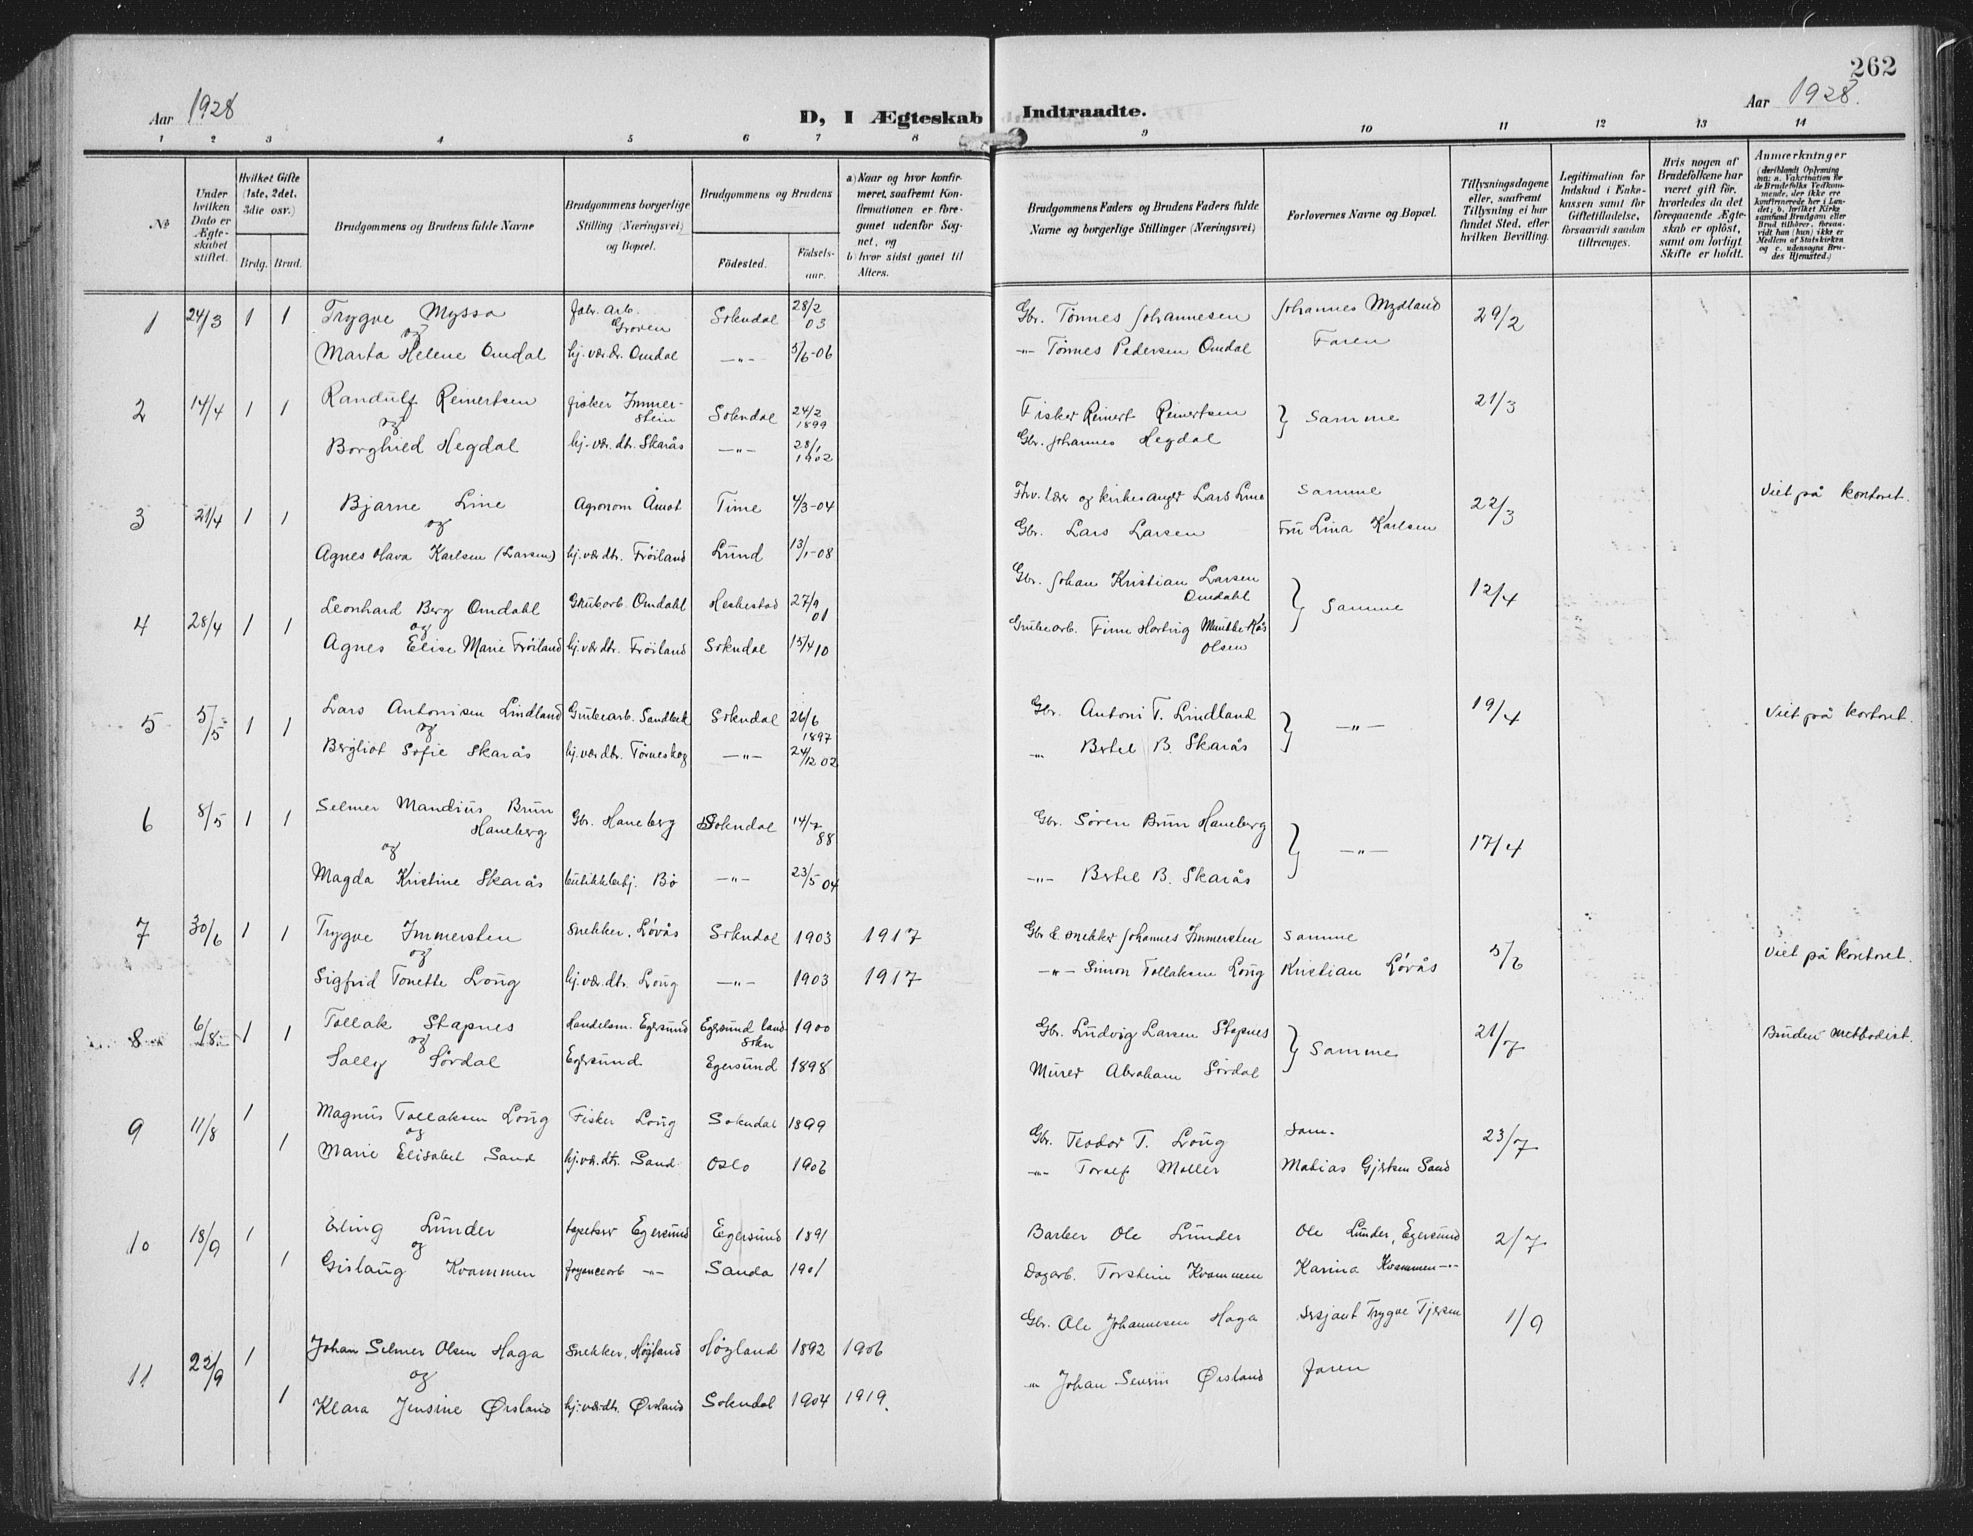 262
Aar 1928
D, I Ægteskab Indtraadte.
Aar 1928.
1 2 3 4 5 6 7 8 9 10 11 12 13 14
No
Under hvilken Dato er Ægteskabet stiftet.
Hvilket Gifte (1ste, 2det, 3die osv.)
Brdg. Brud.
Brudgommens og Brudens fulde Navne
Brudgommens borgerlige Stilling (Næringsvei) og Bopæl.
Brudgommens og Brudens
Fødested. Fødselsaar.
a) Naar og hvor konfirmeret, saafremt Konfirmationen er foregaaet udenfor Sognet, og
b) hvor sidst gaaet til Alters.
Brudgommens Faders og Brudens Faders fulde Navne og borgerlige Stillinger (Næringsvei)
Forlovernes Navne og Bopæl.
Tillysningsdagene eller, saafremt Tillysning ei har fundet Sted, efter hvilken Bevilling.
Legitimation for Indskud i Enkekassen samt for Giftetilladelse, forsaavidt saadan tiltrænges.
Hvis nogen af Brudefolkene har været gift før, hvorledes da det foregaaende Ægteskab er opløst, samt om lovligt Skifte er holdt.
Anmærkninger
(deriblandt Oplysning om: a. Vakcination for de Brudefolks Vedkommende, der ikke ere konfirmerede her i Landet; b. hvilket Kirkesamfund Brudgom eller Brud tilhører, forsaavidt han (hun) ikke er Medlem af Statskirken og c. udensogns Brudes Hjemsted.)
1 24/3 1 1 Trygve Myssa Fabr. arb. Groven Sokndal 28/2 03 Gbr. Tønnes Johannesen Johannes Mydland 29/2
og
Marta Helene Omdal hj. vær. dr. Omdal —"— 5/6-06 —"— Tønnes Pedersen Omdal Faren
2 14/4 1 1 Randulf Reinertsen fisker Immerstein Sokndal 24/2 1899 Fisker Reinert Reinertsen } Samme 21/3
og
Borghild Hegdal hj. vær. dtr. Skarås —"— 28/1 1902 Gbr. Johannes Hegdal
3 21/4 1 1 Bjarne Line Agronom Åmot Time 4/3-04 Fhv. lærer og kirkesanger Lars Line Samme 22/3 Viet på kontoret.
og
Agnes Olava Karlsen (Larsen) hj. vær dtr. Frøiland Lund 13/1-08 Gbr. Lars Larsen Fru Lina Karlsen
4 28/4 1 1 Leonhard Berg Omdahl Grubearb. Omdahl Heskestad 27/9 01 Gbr. Johan Kristian Larsen Omdahl } Samme 12/4
og
Agnes Elise Marie Frøiland hj. vær dtr. Frøiland Sokndal 15/4 10 Grubearb. Finn Hartvig Munthe Kås Olsen
5 5/5 1 1 Lars Antonisen Lindland Grubearb. Sandbekk Sokndal 26/6 1897 Gbr. Antoni T. Lindland } —"— 19/4 Viet på kontoret.
og
Bergliot Sofie Skarås hj. vær dtr. Tørneskog —"— 24/12 02 —"— Bertel B. Skarås
6 8/5 1 1 Selmer Mandius Brun Haneberg Gbr. Haneberg Sokndal 14/7 88 Gbr. Søren Brun Haneberg } —"— 17/4
og
Magda Kristine Skarås butikkbetj. Bø —"— 23/5 04 —"— Bertel B. Skarås
7 30/6 1 1 Trygve Immerstein Snekker, Løvås Sokndal 1903 1917 Gbr & snekker Johannes Immerstein Samme 5/6 Viet på kontoret.
og
Sigfrid Tonette Løug hj. vær. dtr. Løug —"— 1903 1917 —"— Simon Tollaksen Løug Kristian Løvås
8 6/8 1 1 Tollak Stapnes Handelsm. Egersund Egersund landsokn 1900 Gbr. Ludvig Larsen Stapnes } Samme 21/7 Bruden methodist.
og
Sally Sørdal Egersund Egersund 1898 Murer Abraham Sørdal
9 11/8 1 Magnus Tollaksen Løug Fisker Løug Sokndal 1899 Gbr. Teodor T. Løug Sam. 23/7
og
1 Marie Elisabet Sand hj. vær. dtr. Sand Oslo 1906 —"— Toralf Møller Matias Gjertsen Sand
10 18/9 1 Erling Lunder tapetserer Egersund Egersund 1891 Barber Ole Lunder Ole Lunder, Egersund 2/7
og
1 Gislaug Kvammen fayancearb —"— Sanda 1901 Dagarb. Torstein Kvammen Karina Kvammen —"—
11 22/9 1 Johan Selmer Olsen Haga Snekker, Høyland Høyland 1892 1906 Gbr. Ole Johannesen Haga Sersjant Trygve Tjersen 1/9
og
1 Klara Jensine Ørsland hj. vær dtr. Ørsland Sokndal 1904 1919. —"— Johan Severin Ørsland Faren